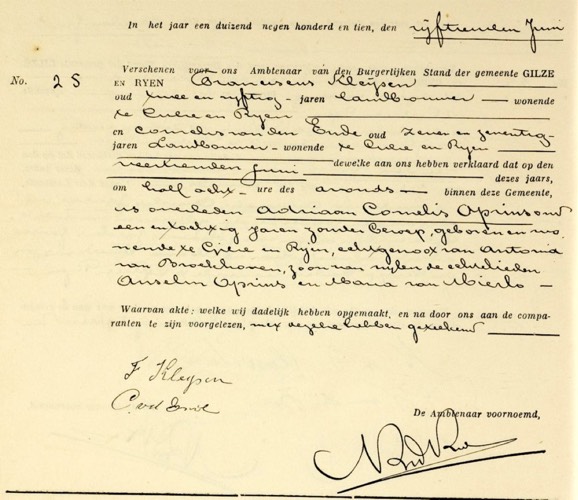 In het jaar een duizend negen honderd en tien, den vijftienden Juni
No. 25
Verschenen voor ons Ambtenaar van den Burgerlijken Stand der gemeente GILZE
EN RYEN Franciscus Kleijsen
oud twee en vijftig jaren landbouwer wonende
te Gilze en Ryen
en Cornelis van den Ende oud zeven en zeventig
jaren Landbouwer wonende te Gilze en Ryen
dewelke aan ons hebben verklaard dat op den
veertienden Juni dezes jaars,
om half acht ure des avonds binnen deze Gemeente,
is overleden Adriaan Cornelis Oprins oud
een en tachtig jaren zonder beroep, geboren en wo
nende te Gilze en Ryen, echtgenoot van Antonia
van Brockhoven, zoon van wijlen de echtelieden
Anselm Oprins en Maria van Mierlo
Waarvan akte; welke wij dadelijk hebben opgemaakt, en na door ons aan de compa-
ranten te zijn voorgelezen, met dezelve hebben geteekend
F Kleysen
C. vd Ende
De Ambtenaar voornoemd,